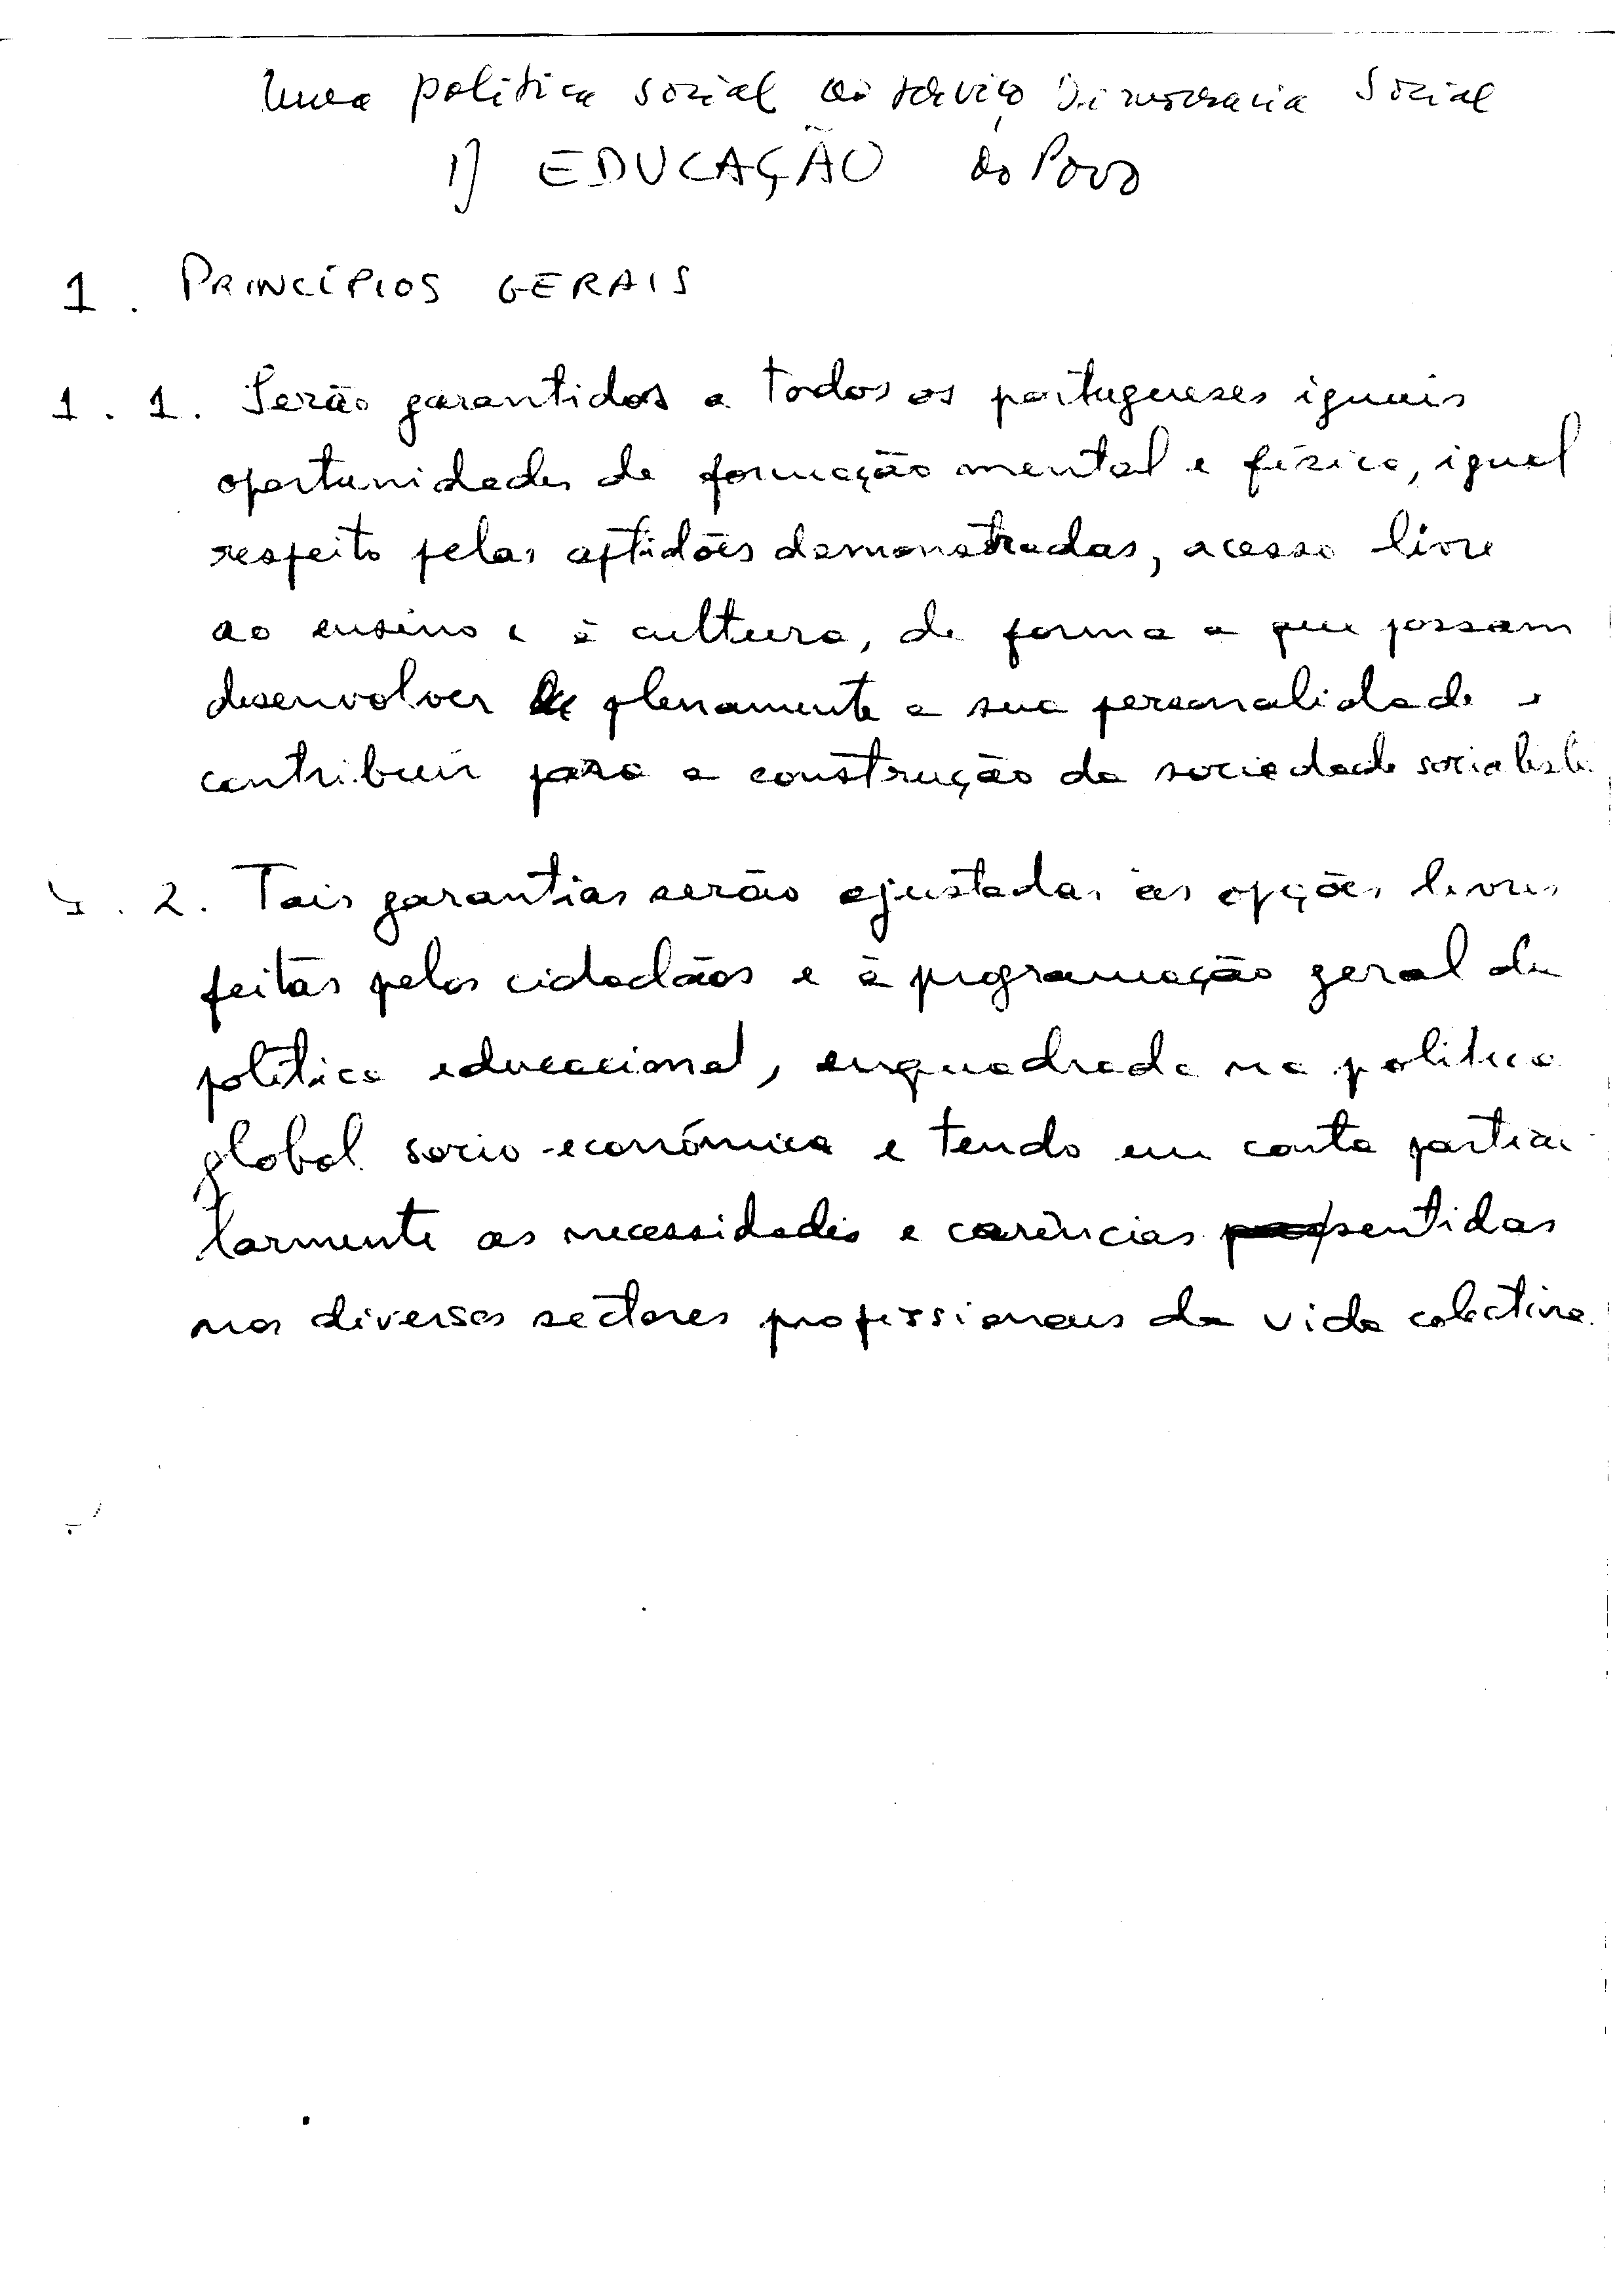 Uma politica social ao serviço Democracia Social
1) EDUCAÇÃO do Povo
1. PRINCÍPIOS GERAIS
1.1. Serão garantidos a todos os portugueses iguais
oportunidades de formação mental e física, igual
respeito pelas aptidões demonstradas, acesso livre
ao ensino e à cultura, de forma a que possam
desenvolver plenamente a sua personalidade e
contribuir para a construção da sociedade socialista
1.2. Tais garantias serão ajustadas às opções livres
feitas pelos cidadãos e à programação geral da
política educacional, enquadrada na politica
global socio-económica e tendo em conta particu
larmente as necessidades e carências sentidas
nos diversos sectores profissionais da vida colectiva.